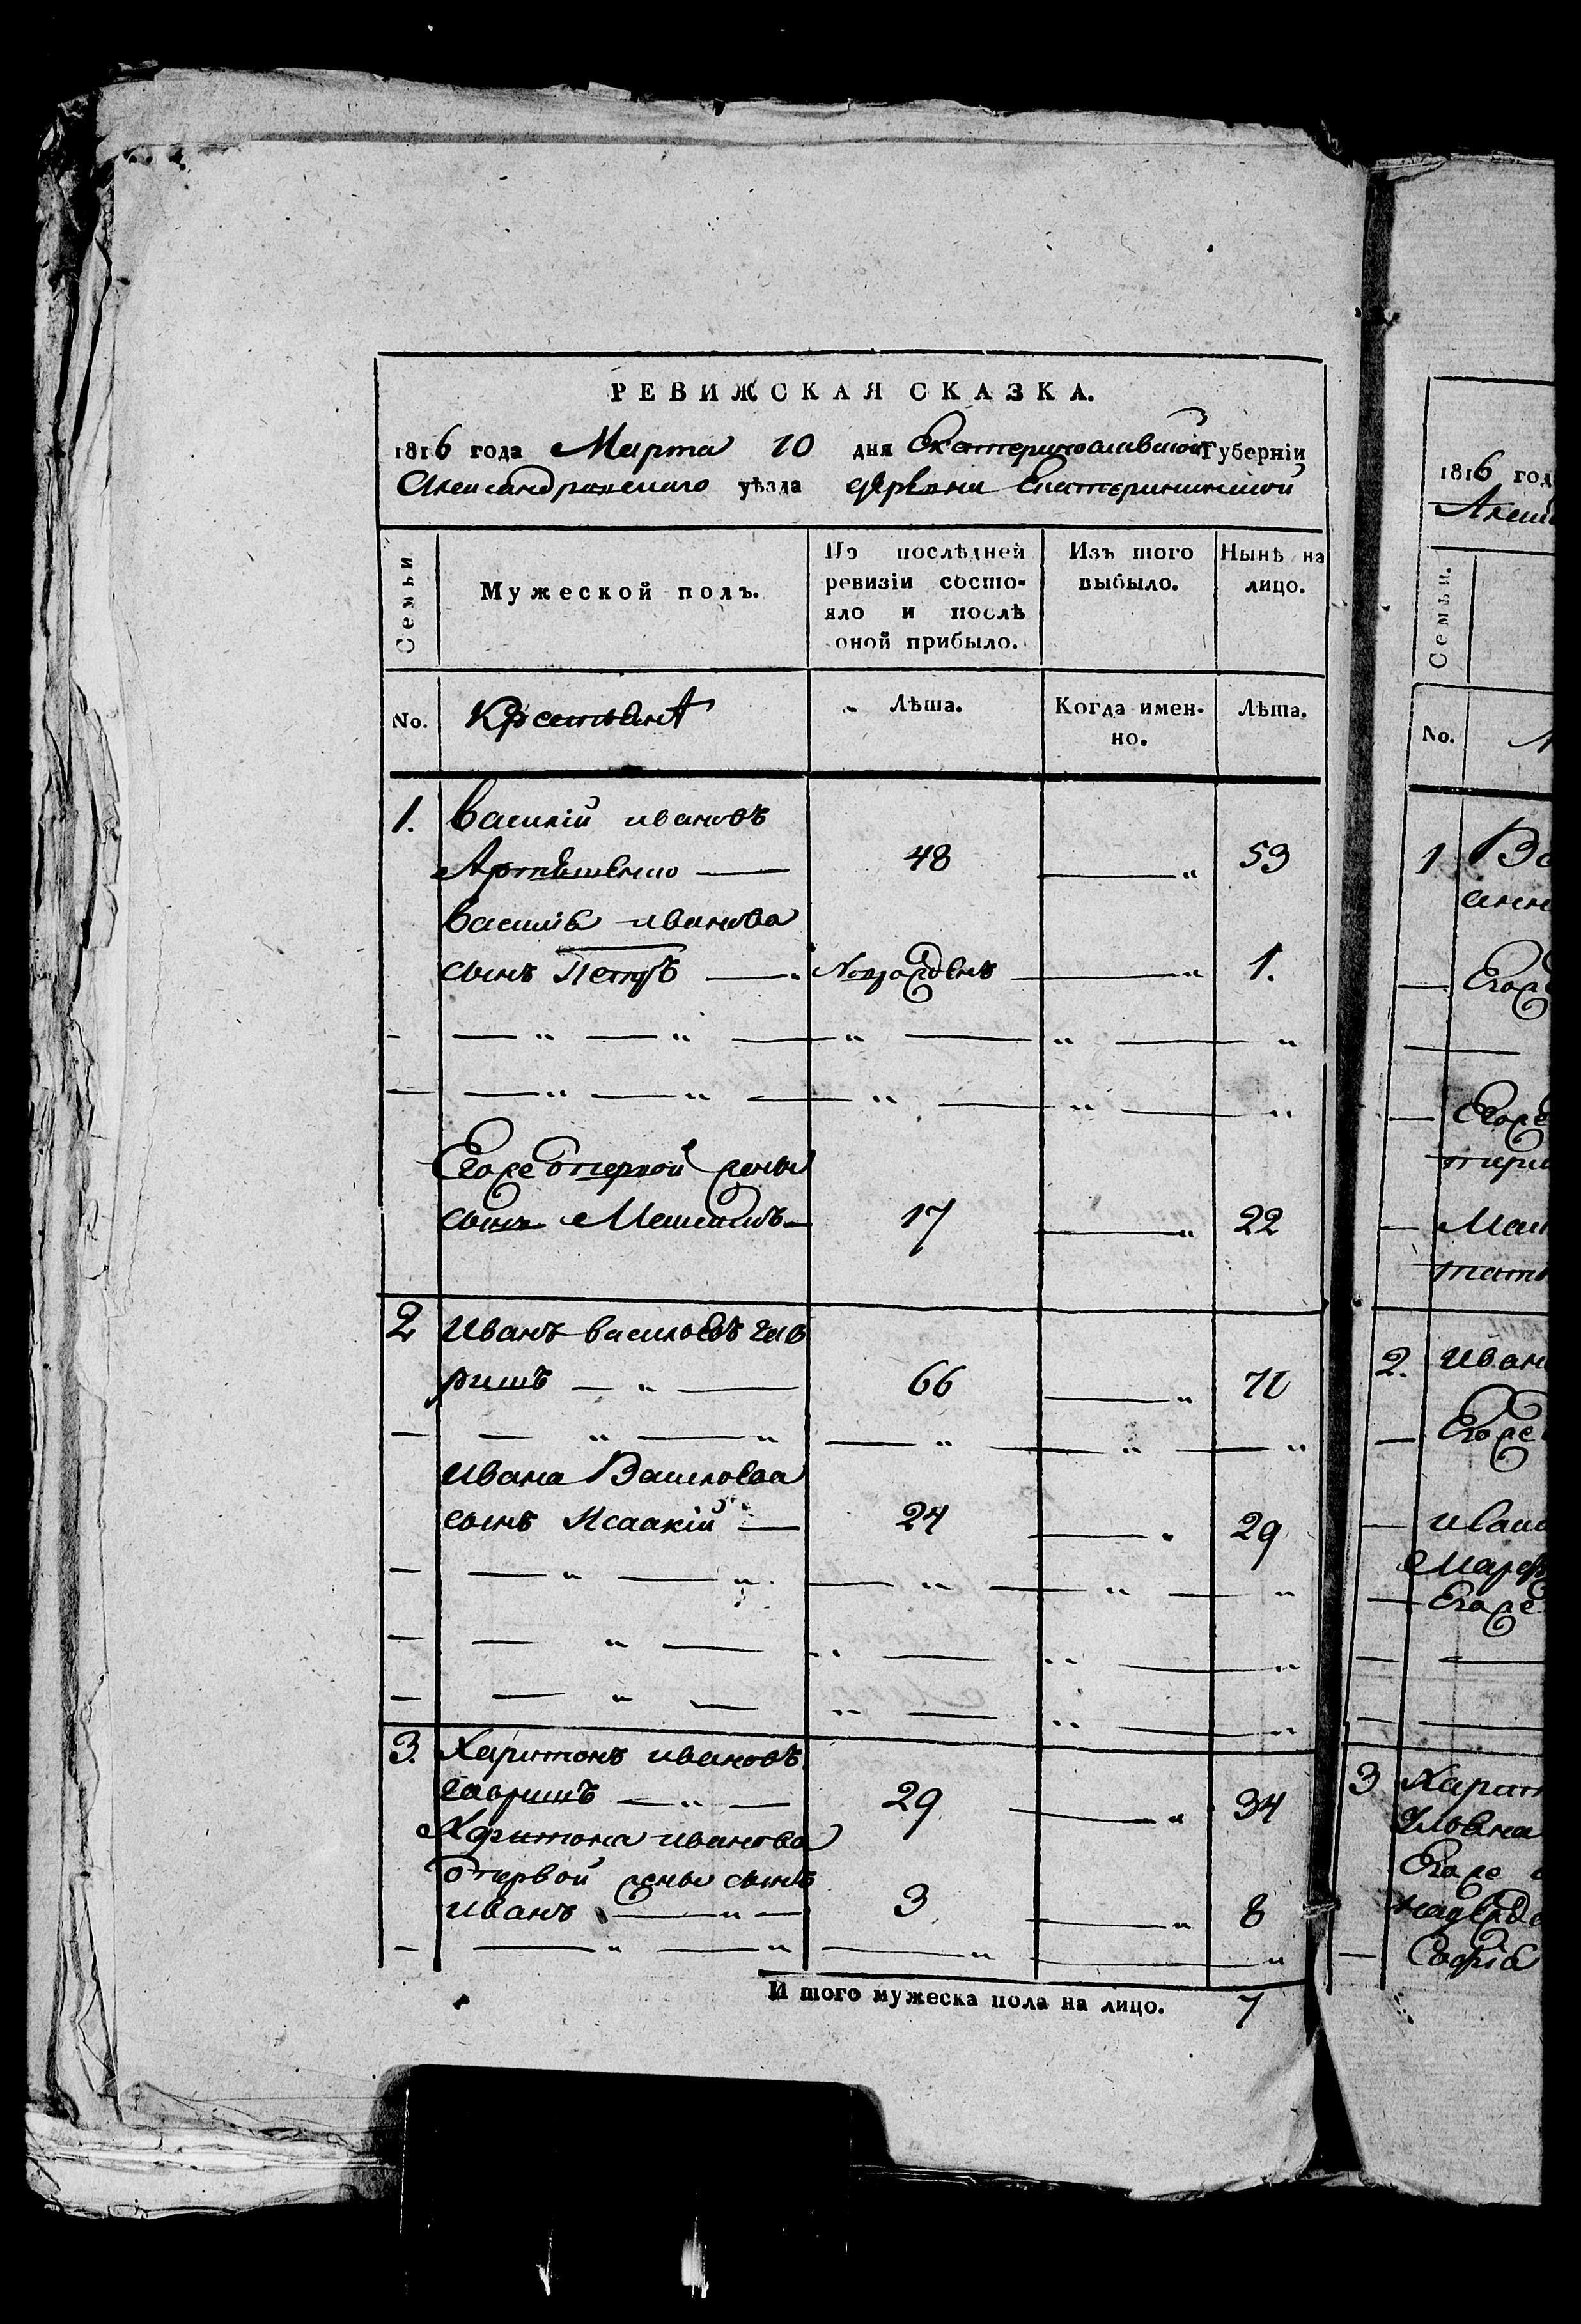 РЕВИЖСКАЯ СКАЗКА.
1816 года Марта 10 дня Екатеринославской Губерніи
Александровскаго уѣзда деревни Екатерининской
Семьи
Мужеской полъ.
По послѣдней ревизіи состояло и послѣ оной прибыло.
Изъ того выбыло.
Нынѣ на лицо.
No.
Крестьянъ
Лѣта.
Когда именно.
Лѣта.
1. Василій ивановъ
48 53
Василія иванова
сынъ Петръ Новорожденъ 1.
Егоже отпервой жены
сынъ 17 22
2 Иванъ васильевъ гав
ришъ 66 71
Ивана Васильева
сынъ Исаакій 24 29
3. Харитонъ ивановъ
гавришъ 29 34
Харитона иванова
отпервой жены сынъ
иванъ 3 8
И того мужеска пола на лицо. 7
1816 год
Семьи.
No.
1
Егоже
Егоже
2. Иван
Егоже
Егоже
3 Харит
Егоже
Софія